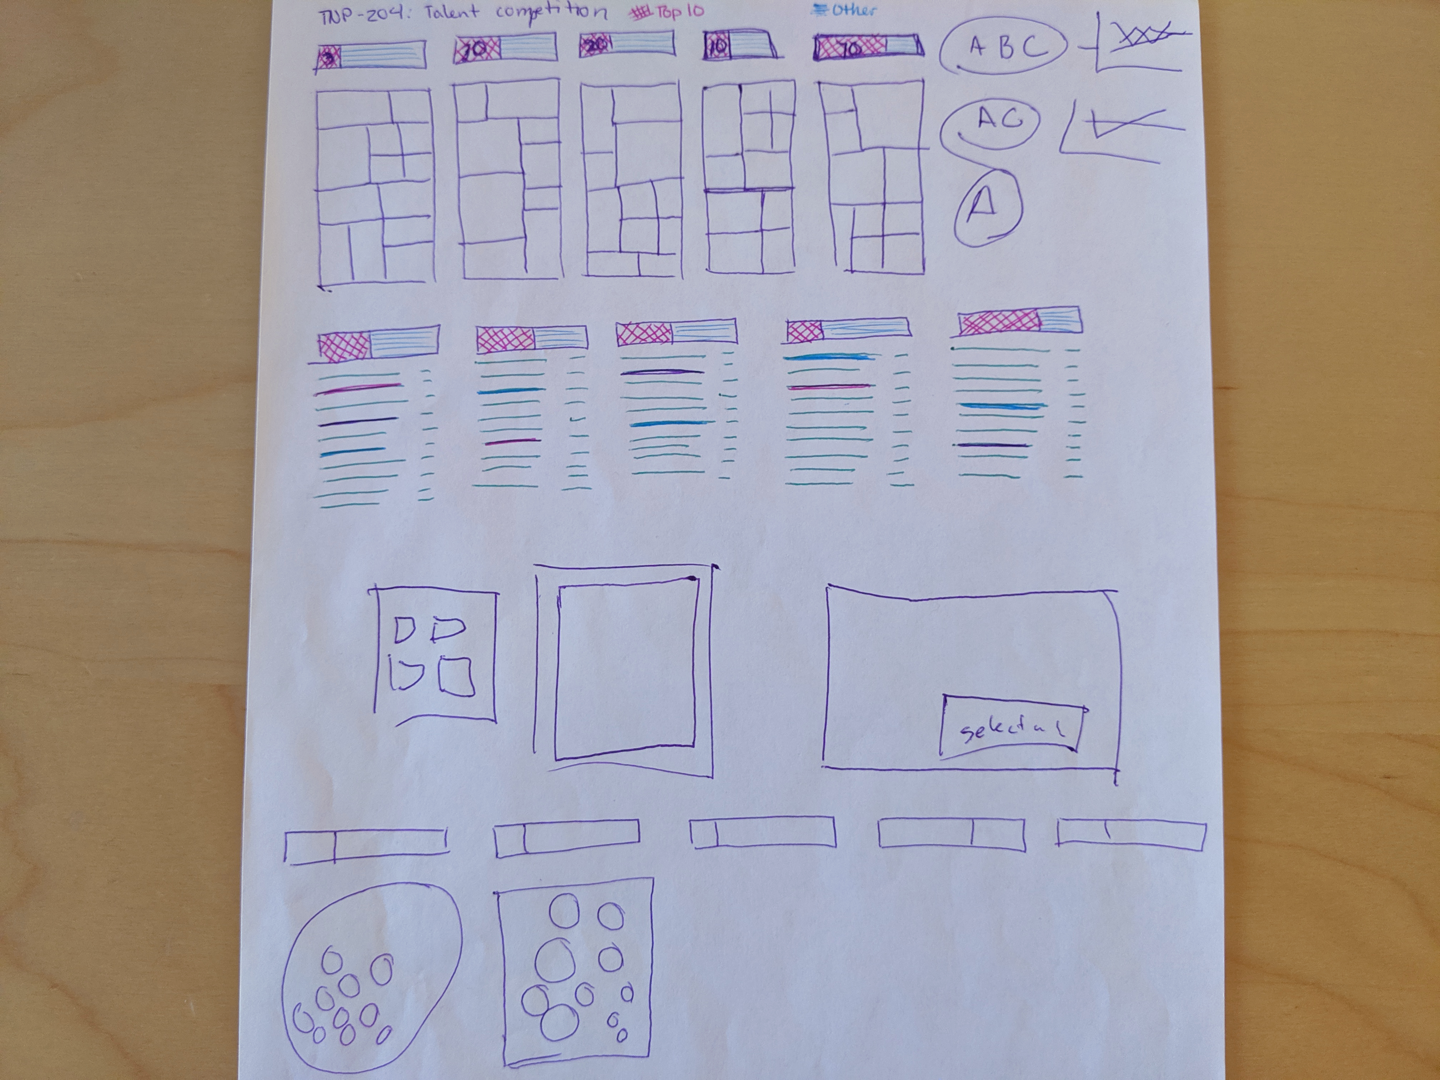 TNP-204: Talent competition Top 10 Other
10 10 10
A B C
A C
A